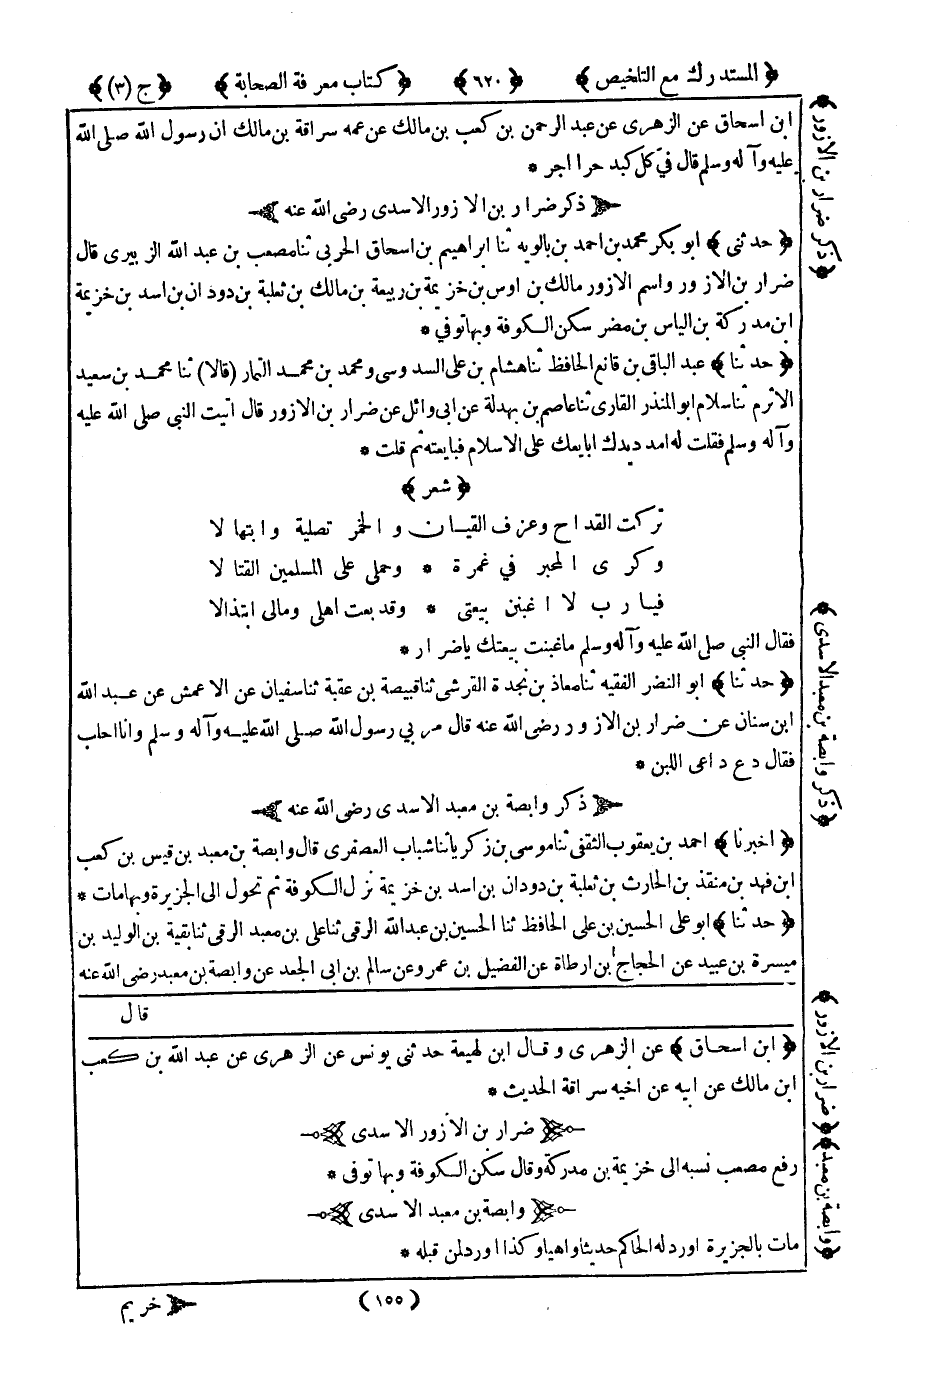 ﴿ المستدرك مع التلخيص ﴾ ﴿ ٦٢٠ ﴾ ﴿ كتاب معرفة الصحابة ﴾ ﴿ ج (٣) ﴾
ابن اسحاق عن الزهرى عن عبد الرحمن بن كعب بن مالك عن عمه سراقة بن مالك ان رسول الله صلى الله
عليه وآله وسلم قال في كل كبد حرا اجر *
ذكر ضرار بن الازور الاسدى رضى الله عنه
﴿ حدثنى ﴾ ابو بكر محمد بن احمد بن بالويه ثنا ابراهيم بن اسحاق الحربى ثنا مصعب بن عبد الله الزبيرى قال
ضرار بن الازور واسم الازور مالك بن اوس بن خزيمة بن ربيعة بن مالك بن ثعلبة بن دودان بن اسد بن خزيمة
ابن مدركة بن الياس بن مضر سكن الكوفة وبها توفي *
﴿ حدثنا ﴾ عبد الباقى بن قانع الحافظ ثنا هشام بن على السدوسى ومحمد بن محمد التمار (قالا) ثنا محمد بن سعيد
الاثرم ثنا سلام ابو المنذر القارى ثنا عاصم بن بهدلة عن ابى وائل عن ضرار بن الازور قال اتيت النبى صلى الله عليه
وآله وسلم فقلت له امدد يدك ابايعك على الاسلام فبايعته ثم قلت *
﴿ شعر ﴾
تركت القداح وعزف القيان والخمر تصلية وابتهالا
وكرى المحبر في غمرة * وحملى على المسلمين القتالا
فيارب لا اغبنن بيعتى * وقد بعت اهلى ومالى ابتذالا
فقال النبى صلى الله عليه وآله وسلم ما غبنت بيعتك ياضرار *
﴿ حدثنا ﴾ ابو النضر الفقيه ثنا معاذ بن نجدة القرشى ثنا قبيصة بن عقبة ثنا سفيان عن الاعمش عن عبد الله
ابن سنان عن ضرار بن الازور رضى الله عنه قال مر بي رسول الله صلى الله عليه وآله وسلم وانا احلب
فقال دع داعى اللبن *
ذكر وابصة بن معبد الاسدى رضى الله عنه
﴿ اخبرنا ﴾ احمد بن يعقوب الثقفى ثنا موسى بن زكريا ثنا شباب العصفرى قال وابصة بن معبد بن قيس بن كعب
ابن فهد بن منقذ بن الحارث بن ثعلبة بن دودان بن اسد بن خزيمة نزل الكوفة ثم تحول الى الجزيرة وبها مات *
﴿ حدثنا ﴾ ابو على الحسين بن على الحافظ ثنا الحسين بن عبدالله الرقى ثنا على بن معبد الرقى ثنا بقية بن الوليد بن
ميسرة بن عبيد عن الحجاج بن ارطاة عن الفضيل بن عمرو عن سالم بن ابى الجعد عن وابصة بن معبد رضى الله عنه
قال
﴿ ابن اسحاق ﴾ عن الزهرى وقال ابن لهيعة حدثنى يونس عن الزهرى عن عبد الله بن كعب
ابن مالك عن ابيه عن اخيه سراقة الحديث *
ضرار بن الازور الاسدى
رفع مصعب نسبه الى خزيمة بن مدركة وقال سكن الكوفة وبها توفى *
وابصة بن معبد الاسدى
مات بالجزيرة اورد له الحاكم حديثا واهيا وكذا اورد لمن قبله *
(١٥٥)
خريم
﴿ ذكر ضرار بن الازور ﴾
﴿ ذكر وابصة بن معبد الاسدى ﴾
﴿ ضرار بن الازور ﴾
﴿ وابصة بن معبد ﴾